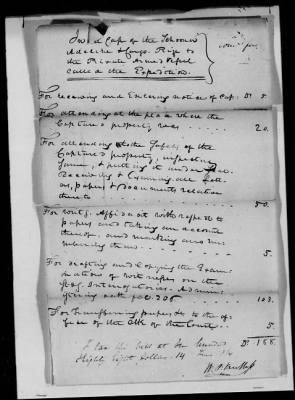 Capt. of the Schooner
Adeline & Cargo Prize to
the Private Armed Vessel
called the Expedition.
For receiving and Entering notice of Cap: D. 5.
For attending at the place where the
Captured property was, 20.
For attending to the safety of the
Captured property, inspecting
same, & putting it under
Receiving & Examining all
papers & documents relation
thereto 50.
For Affidavit with respect to
papers and taking an account
thereof, and marking and num
bering them 5.
For drafting and Copying the Exam
inations of witnesses on the
Interrogatories, Admin
istering oath 103.
For transferring papers to the of-
fice of the Clk of the Court 5.
D. 188.
I tax this bill at One hundred
Eighty Eight dollars. 14